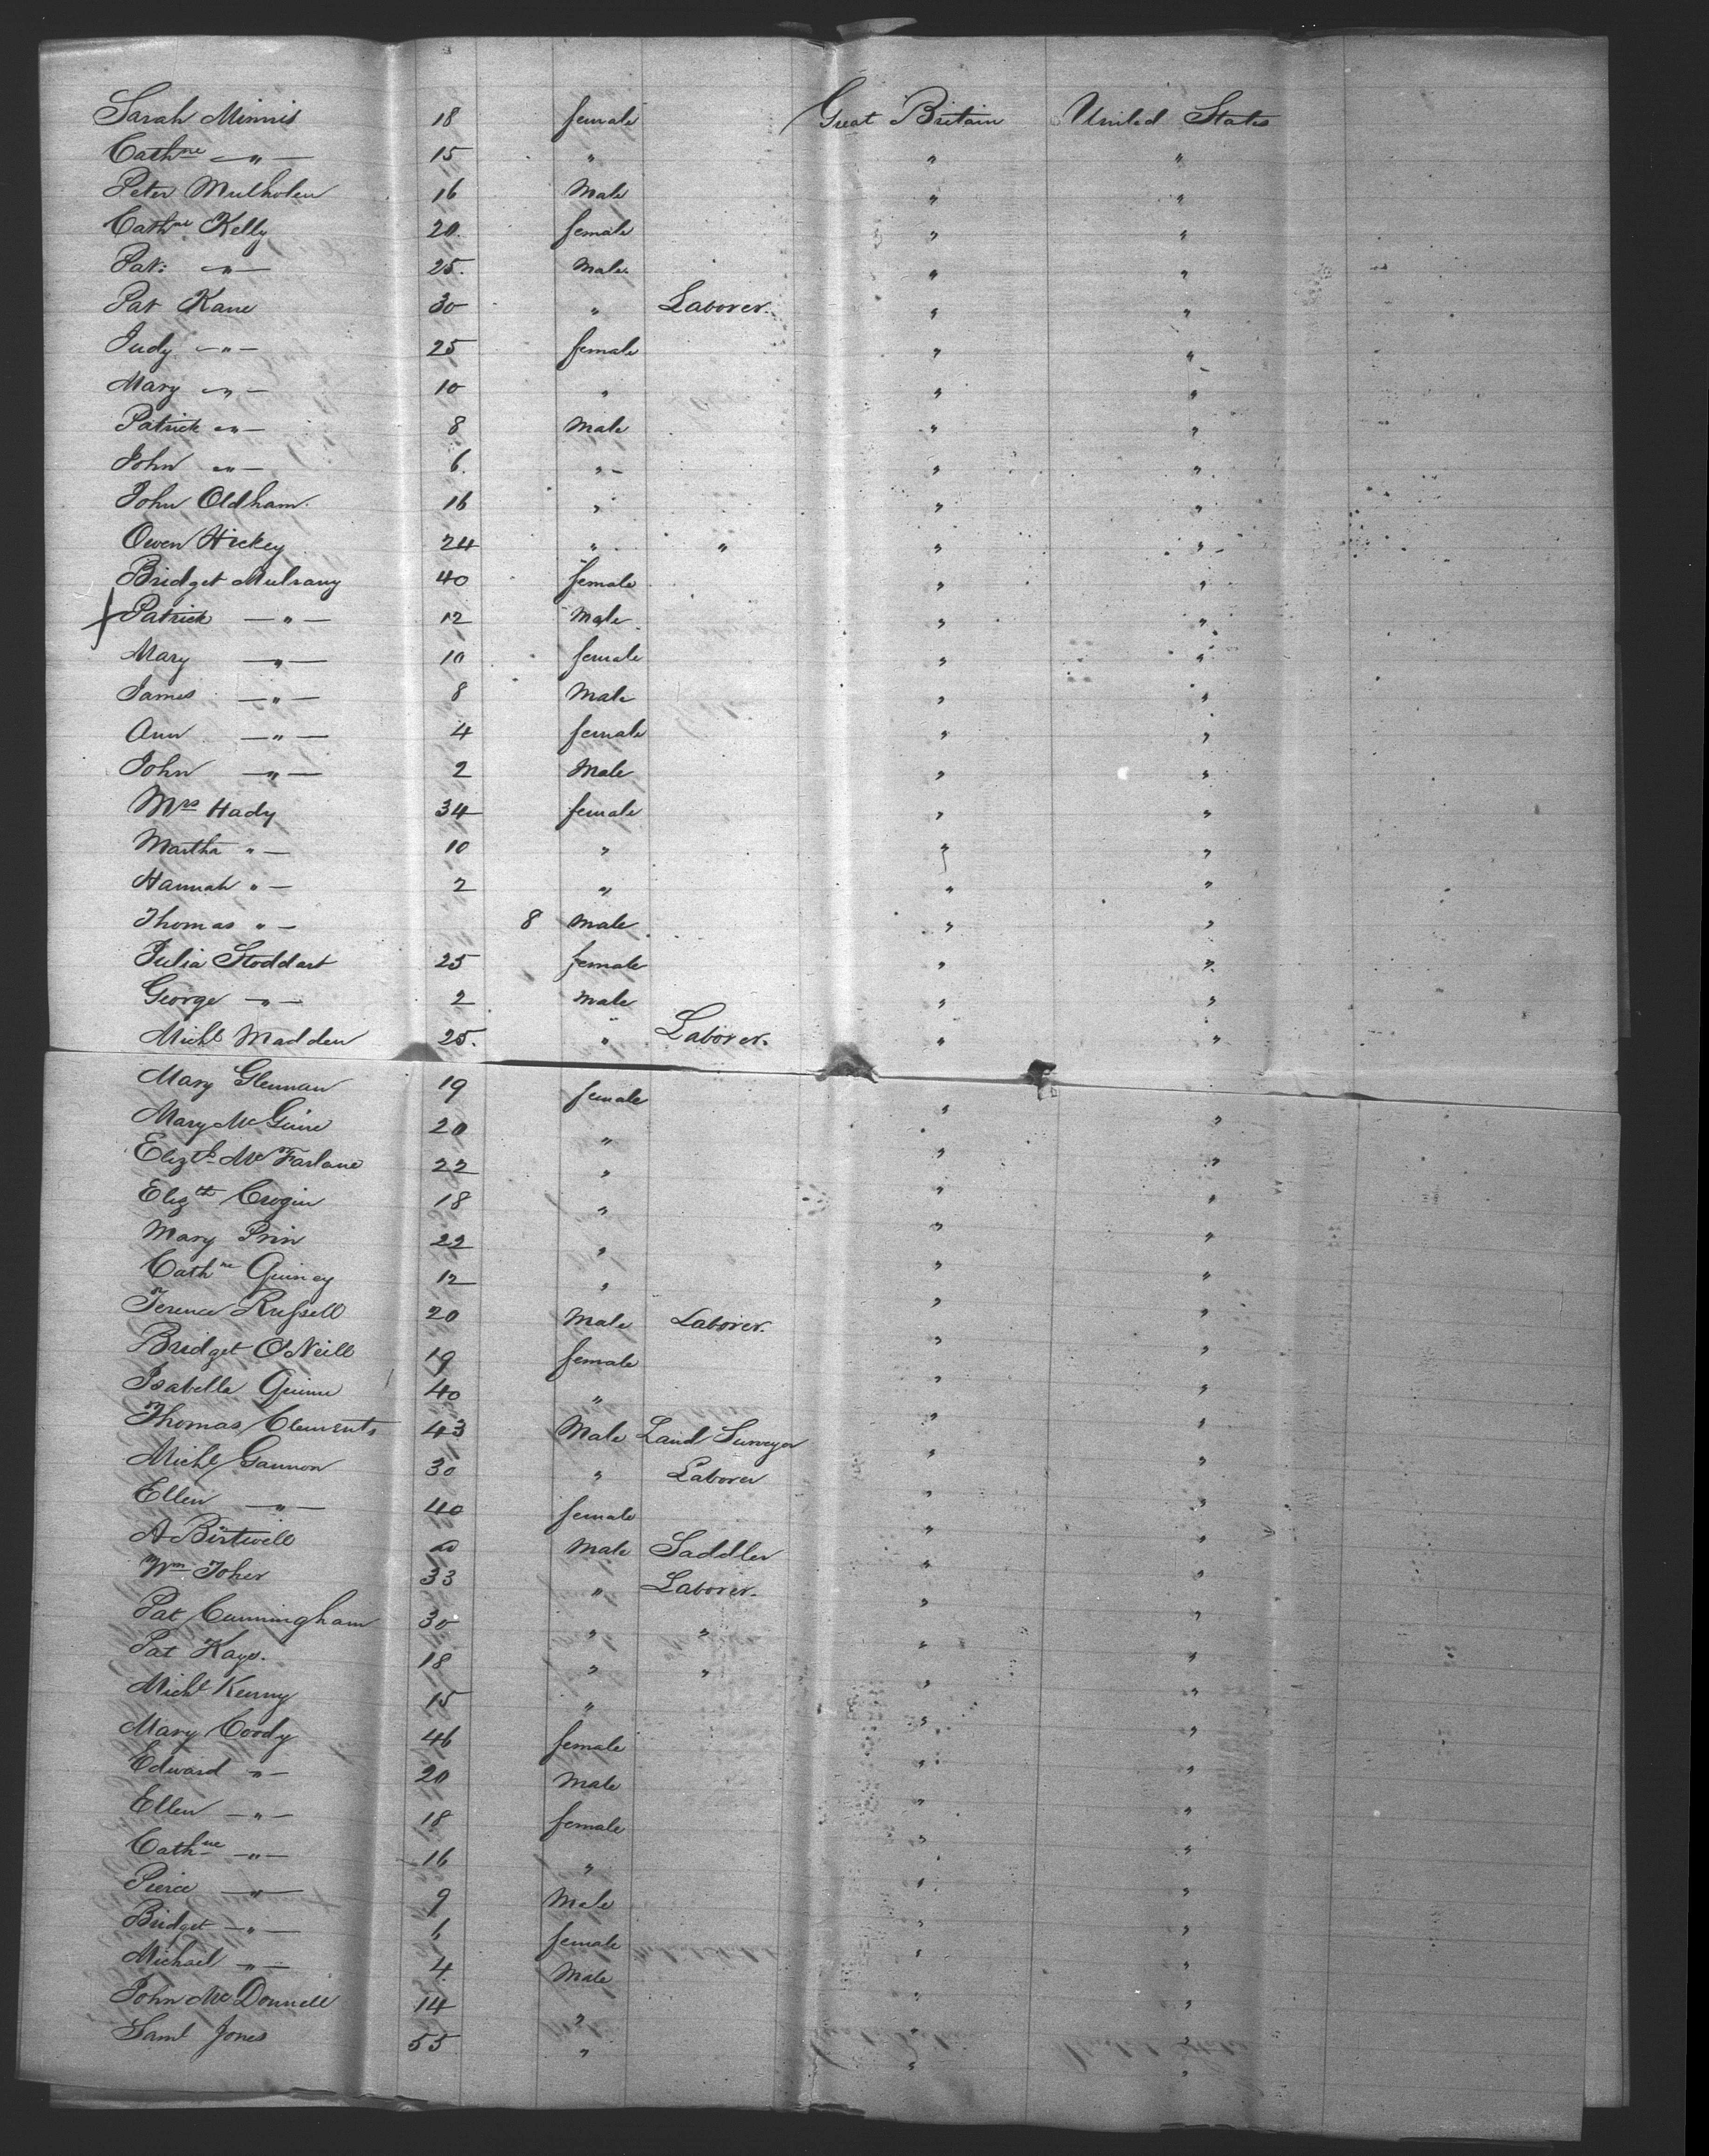 Sarah Minnis 18 female Great Britain United States
Cathne — " — 15 " " "
Peter Mulholen 16 Male " "
Cathne Kelly 20. female " "
Pat: — " — 25. Male " "
Pat Kane 30 " Laborer. " "
Judy — " — 25 female " "
Mary — " — 10 " " "
Patrick — " — 8 Male " "
John — " — 6. " — " "
John Oldham. 16 " " "
Owen Hickey 24 " " " "
Bridget Mulrany 40 female " "
Patrick — " — 12 Male " "
Mary — " — 10 female " "
James — " — 8 Male " "
Ann — " — 4 female " "
John — " — 2 Male " "
Mrs Hady 34 female " "
Martha " — 10 " " "
Hannah " — 2 " " "
Thomas " — 8 Male " "
Julia Stoddart 25 female " "
George — " — 2 Male " "
Michl Madden 25. " Laborer. " "
Mary Glennan 19 female " "
Mary McGuire 20 " " "
Elizth McFarlane 22 " " "
Elizth Crogin 18 " " "
Mary Prin 22 " " "
Cathne Quincy 12 " " "
Terence Russell 20 Male Laborer. " "
Bridget O'Neill 19 female " "
Isabella Quinn 40 " " "
Thomas Clements 43 Male Land Surveyor " "
Michl Gannon 30 " Laborer " "
Ellen — " — 40 female " "
A Birtwell Male Saddler " "
Wm Toher 33 " Laborer. " "
Pat Cunningham 30 " " " "
Pat Kays. 18 " " " "
Michl Kenny 15 " " "
Mary Coody 46 female " "
Edward — " — 20 Male " "
Ellen — " — 18 female " "
Cathne — " — 16 " " "
Pierce — " — 9 Male " "
Bridget — " — 6 female " "
Michael — " — 4 Male " "
John McDonnell 14 " " "
Saml Jones 55 " " "